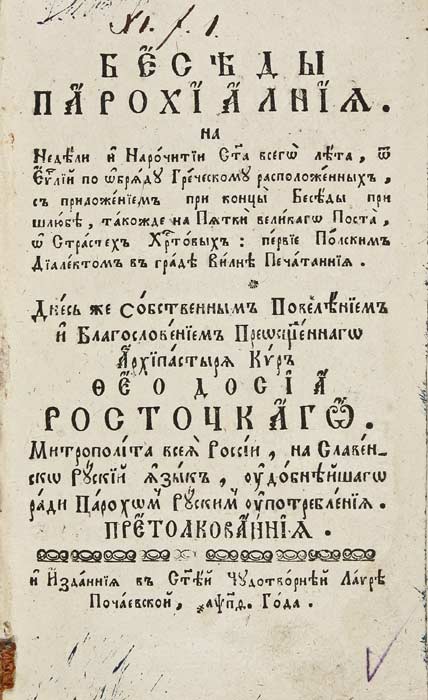 №. f. 1.
БЕ́СѢДЫ
ПА́РОХІА́ЛНІѦ.
НА
Недѣ́ли и҆ Наро́читїи Ст҃а всегѡ̀ лѣ́та, ѿ
Єѵⷢ҇лїй по ѡ҆бря́ду Гре́ческому расположе́нныхъ,
съ приложе́нїемъ при концы̀ Бесѣ́ды при
шлю́бѣ, та́кожде на Пѧ́тки вели́кагѡ По́ста,
ѡ҆ Страстехъ Хрⷭ҇то́выхъ: пе́рвіе По́лскимъ
Дїале́ктомъ въ гра́дѣ Ви́лнѣ Печа́таннїѧ.
Дне́сь же Со́бственнымъ Повелѣ́нїемъ
и҆ Благослове́нїемъ Преѡсщ҃е́ннагѡ
А҆рхїпа́стырѧ Кѷ́ръ
ѲЕО́ДОСІА
РОСТОЧКА́ГѠ.
Митрополі́та всеѧ̀ Россі́и, на Славе́н_
скѡ Рꙋ́скїй ѧ҆зы́къ, ᲂу҆до́бнѣйшагѡ
ра́ди Па́рохѡмъ Рꙋ́скимъ ᲂу҆потребле́нїѧ.
ПРЕТОЛКОВА́ННІѦ.
и҆ И҆зда́ннїѧ въ Ст҃е́й Чꙋдотво́рнѣй Ла́ѵрѣ
Поча́евской, ҂аѱп҃ѳ. Го́да.